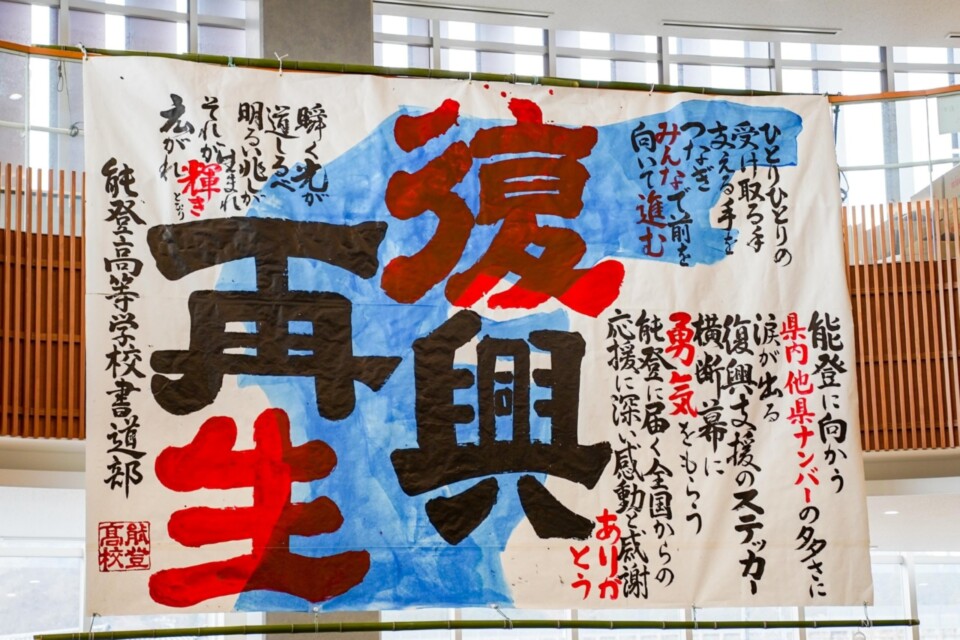 能登に向かう
県内他県ナンバーの多さに
涙が出る
復興支援のステッカー
横断幕に
勇気をもらう
能登に届く全国からの
応援に深い感動と感謝
ありが
とう
ひとりひとりの
受け取る手
支える手を
つなぎ
みんなで前を
向いて進む
復興
再生
瞬く光が
道しるべ
明るい兆しが
生まれ
それが輝きとなり
広がれ
能登高等学校書道部
能登
高校